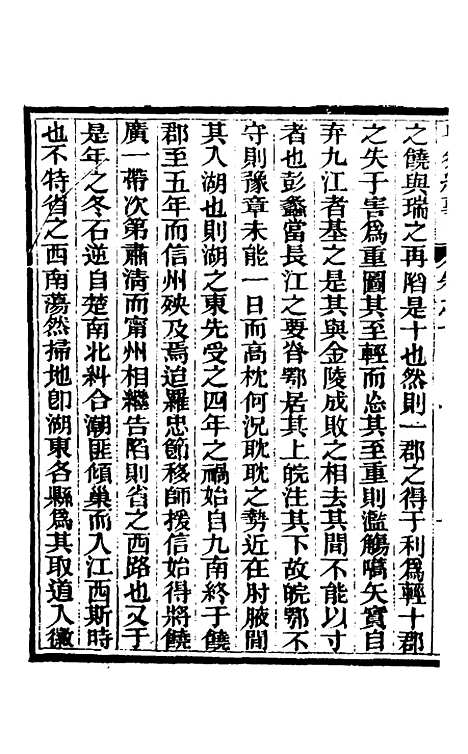 之饒與瑞之再陷是十也然則一郡之得于利爲輕十郡
之失于害爲重圖其至輕而忽其至重則濫觴嚆矢實自
弃九江者基之是其與金陵成敗之相去其間不能以寸
者也彭蠡當長江之要脊鄂居其上皖注其下故皖鄂不
守則豫章未能一日而高枕何況耽耽之勢近在肘腋間
其入湖也則湖之東先受之四年之禍始自九南終于饒
郡至五年而信州殃及焉迨羅忠節移師援信始得將饒
廣一帶次第肅清而甯州相繼告陷則省之西路也又于
是年之冬石逆自楚南北糾合潮匪傾巢而入江西斯時
也不特省之西南蕩然掃地卽湖東各縣爲其取道入徽